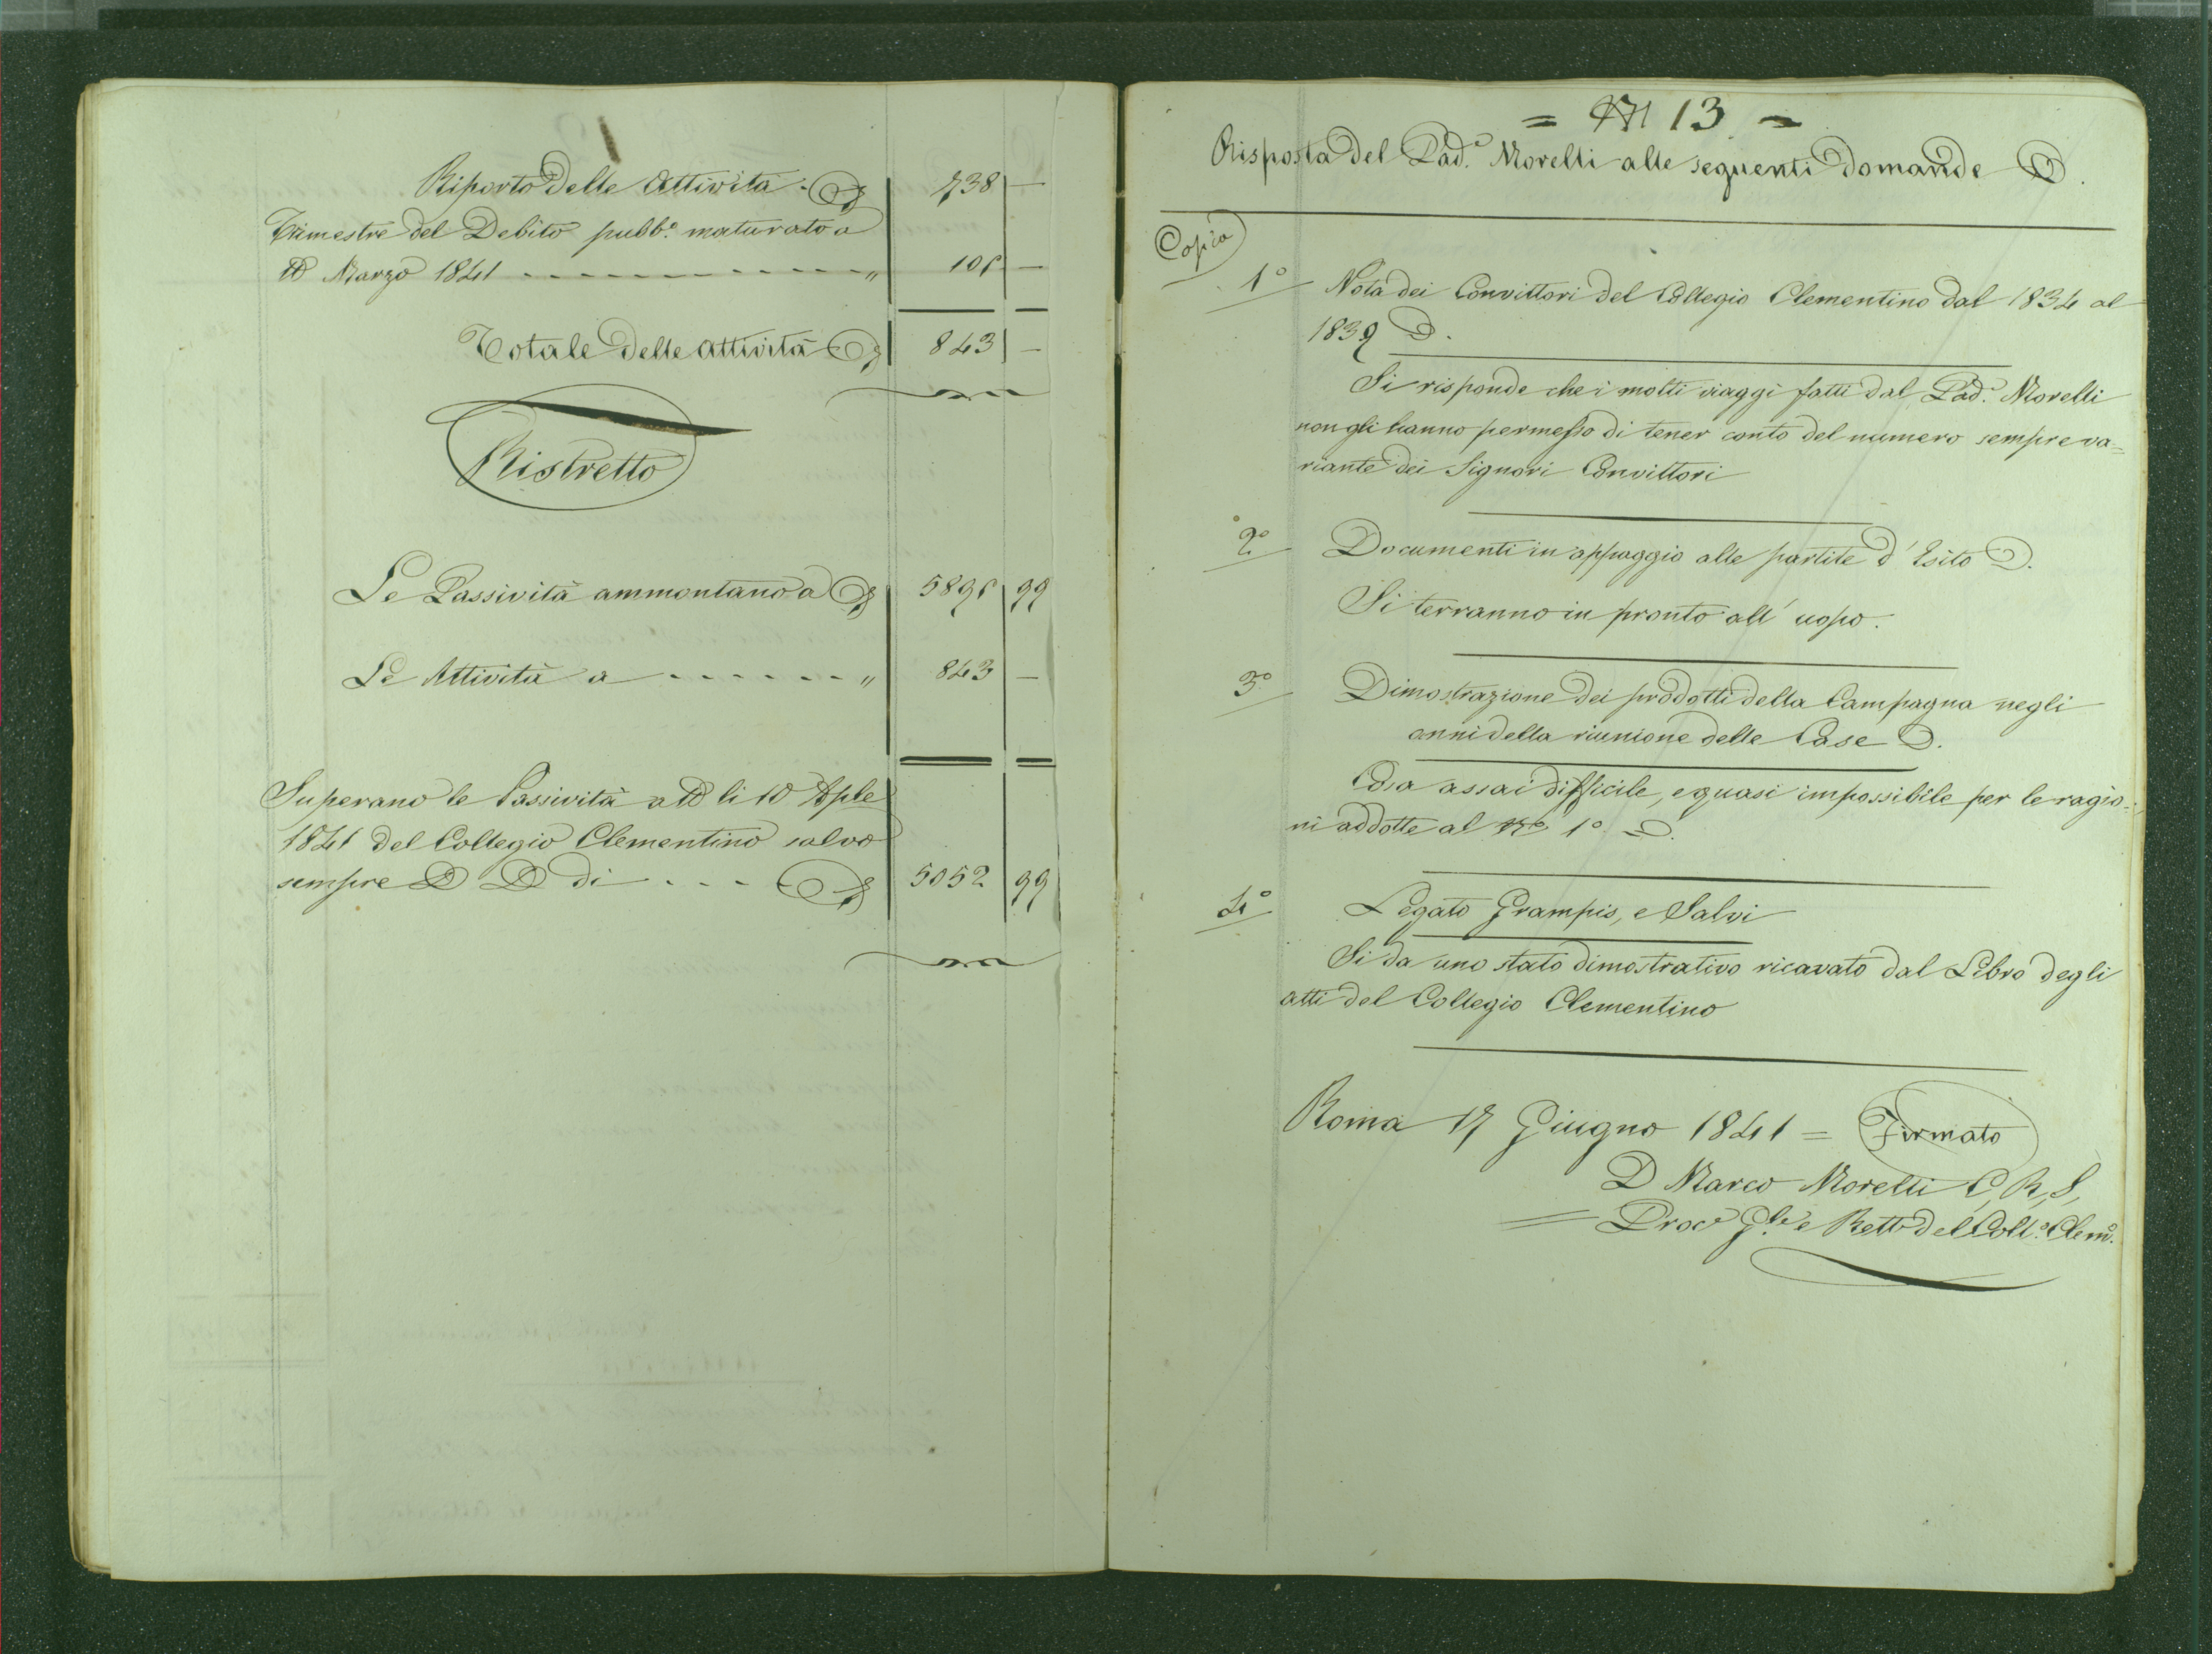 Riporto delle Attività 738 —
Trimestre del Debito pubb.o maturato a
tto Marzo 1841 - - - - - - - - - - - - " 105 —
Totale delle Attività 843 —
Ristretto
Le Passività ammontano a 5895 99
Le Attività a - - - - - - " 843 —
Superano le Passività a tto li 10 Aple
1841 del Collegio Clementino salvo
sempre di . - - - 5052 99
= N 13 =
Risposta del Pad.e Morelli alle seguenti domande
Copia
1o Nota dei Convittori del Collegio Clementino dal 1834 al
1839
Si risponde che i molti viaggi fatti dal Pad.e Morelli
non gli hanno permesso di tener conto del numero sempre va=
riante dei Signori Convittori
2o Documenti in appoggio alle partite d'Esito
Si terranno in pronto all'uopo.
3o Dimostrazione dei prodotti della Campagna negli
anni della riunione delle Case
Cosa assai difficile, e quasi impossibile per le ragio=
ni addotte al No 1o
4o Legato Grampis, e Salvi
Si da uno stato dimostrativo ricavato dal Libro degli
atti del Collegio Clementino
Roma 17 Giugno 1841 = Firmato
D Marco Morelli C, R, S,
= Proc.e G.le e Rett.e del Coll.o Clem.o